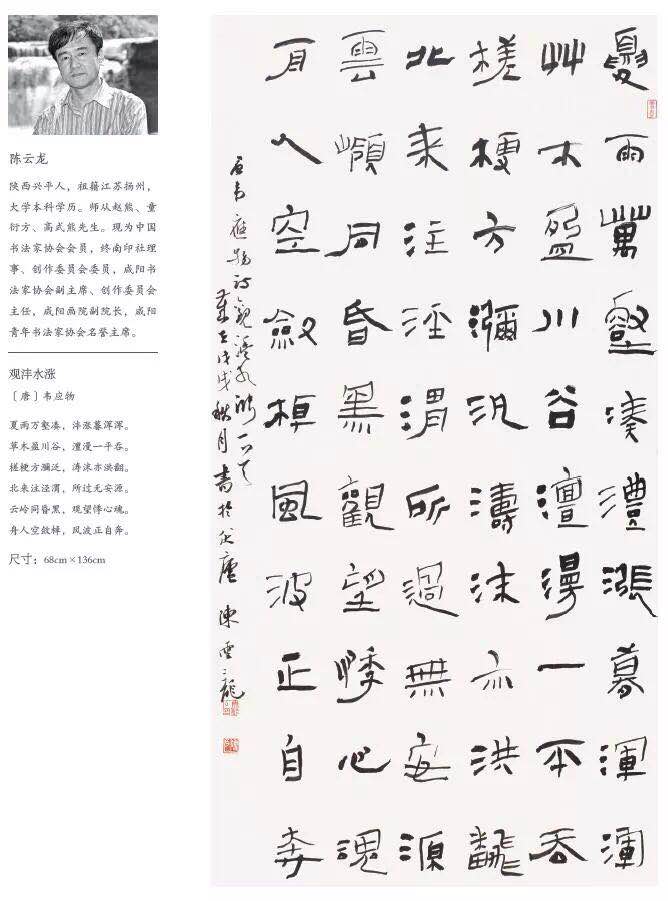 陈云龙
陕西兴平人，祖籍江苏扬州，
大学本科学历。师从赵熊、童
衍方、高式熊先生。现为中国
书法家协会会员，终南印社理
事、创作委员会委员，咸阳书
法家协会副主席、创作委员会
主任，咸阳画院副院长，咸阳
青年书法家协会名誉主席。
观沣水涨
〔唐〕韦应物
夏雨万壑凑，沣涨暮浑浑。
草木盈川谷，澶漫一平吞。
槎梗方瀰泛，涛沫亦洪翻。
北来注泾渭，所过无安源。
云岭同昏黑，观望悸心魂。
舟人空敛棹，风波正自奔。
尺寸：68cm×136cm
夏雨萬壑湊澧漲暮渾渾
艸木盈川谷澶漫一平吞
槎梗方瀰汎濤沫亦洪飜
北来注涇渭所過無安源
雲嶺同昏黑觀望悸心魂
舟人空斂棹風波正自奔
唐韦應物诗觀灃水漲一首
歲在戊戌秋月書於 廬 陳雲龍